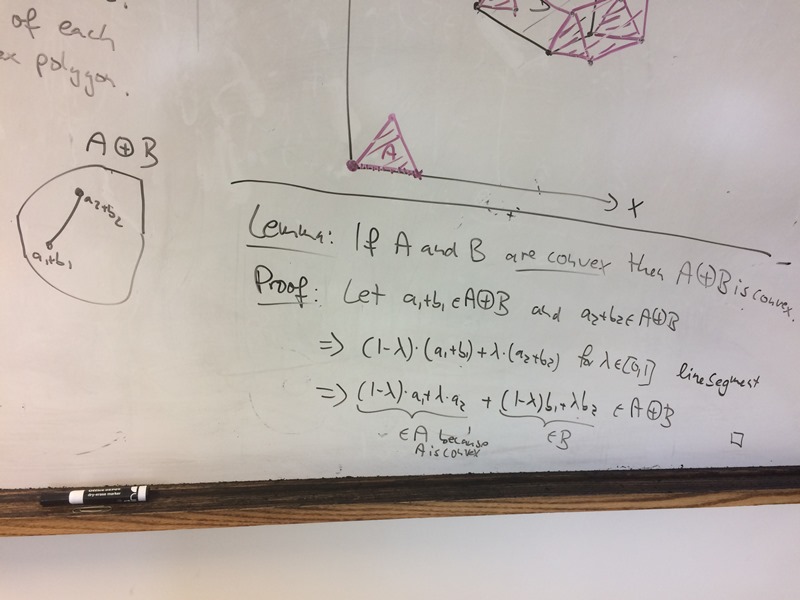 of each
polygon.
A⊕B
a₂+b₂
a₁+b₁
A
X
Lemma: If A and B are convex then A⊕B is convex.
Proof: Let a₁+b₁∈A⊕B and a₂+b₂∈A⊕B
=> (1-λ)·(a₁+b₁)+λ·(a₂+b₂) for λ∈[0,1] line segment
=> (1-λ)·a₁+λ·a₂ + (1-λ)b₁+λb₂ ∈ A⊕B
∈A because ∈B
A is convex